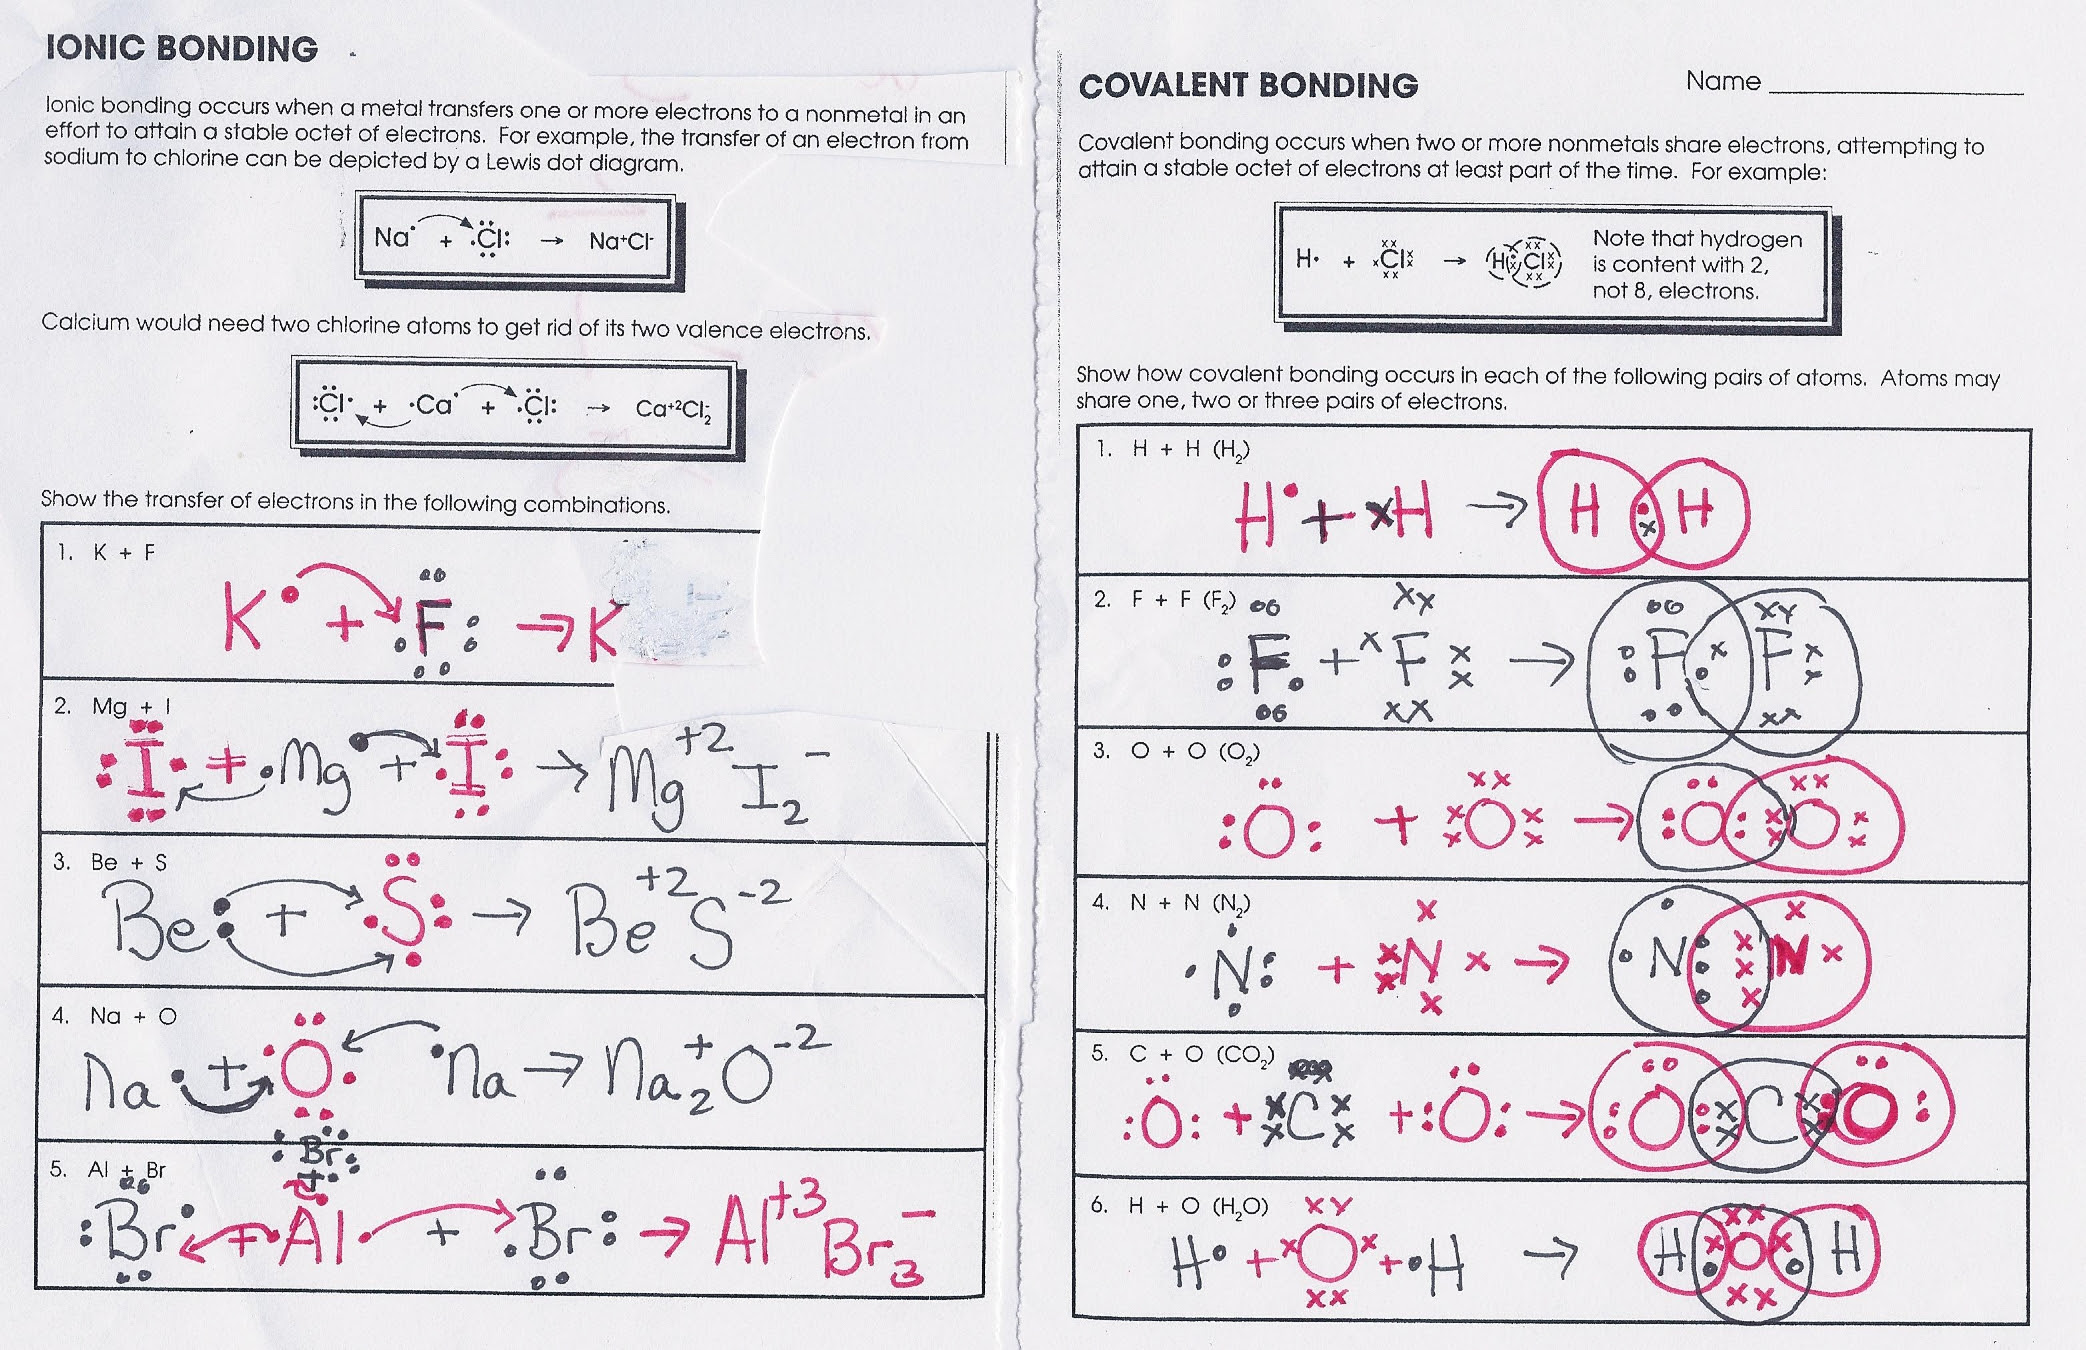 IONIC BONDING
Ionic bonding occurs when a metal transfers one or more electrons to a nonmetal in an
effort to attain a stable octet of electrons. For example, the transfer of an electron from
sodium to chlorine can be depicted by a Lewis dot diagram.
Na + Cl → Na⁺Cl⁻
Calcium would need two chlorine atoms to get rid of its two valence electrons.
Cl + Ca + Cl → Ca⁺²Cl₂⁻
Show the transfer of electrons in the following combinations.
1. K + F
K + F → K
2. Mg + I
I + Mg + I → Mg⁺² I₂⁻
3. Be + S
Be + S → Be⁺² S⁻²
4. Na + O
Na + O Na → Na₂⁺ O⁻²
5. Al + Br
Br
+
Br + Al + Br → Al⁺³ Br₃⁻
COVALENT BONDING
Name
Covalent bonding occurs when two or more nonmetals share electrons, attempting to
attain a stable octet of electrons at least part of the time. For example:
H + Cl → H Cl
Note that hydrogen
is content with 2,
not 8, electrons.
Show how covalent bonding occurs in each of the following pairs of atoms. Atoms may
share one, two or three pairs of electrons.
1. H + H (H₂)
H + H → H H
2. F + F (F₂)
F + F → F F
3. O + O (O₂)
O + O → O O
4. N + N (N₂)
N + N → N N
5. C + O (CO₂)
O + C + O → O C O
6. H + O (H₂O)
H + O + H → H O H